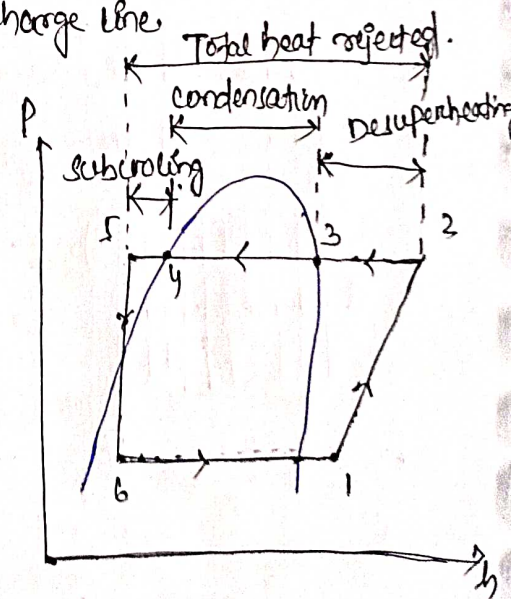 charge line
Total heat rejected.
condensation
P
Desuperheating
subcooling
5
3
2
4
6
1
h